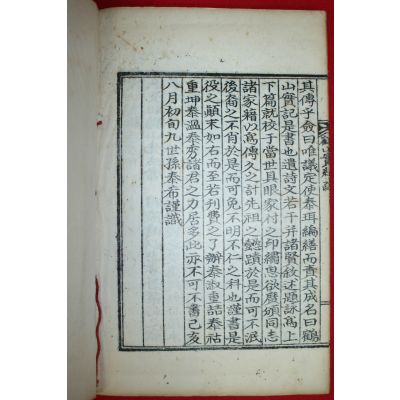 其傳乎僉曰唯議定使泰珥編繕而責其成名曰鶴
山實記是書也遺詩文若干并諸賢敘述題詠爲上
下篇就校于當世具眼家村之印繡思欲廣頒同志
諸家籍以爲傳之之計先祖之懿蹟於是而可不泯
後裔之不肖於是而可免不明不仁之科也謹書是
役之顚末如右而至若利費之了辦泰淑重喆泰祜
重坤泰溫泰秀諸君之力居多此亦不可不書己亥
八月初旬九世孫泰希謹識
山實紀